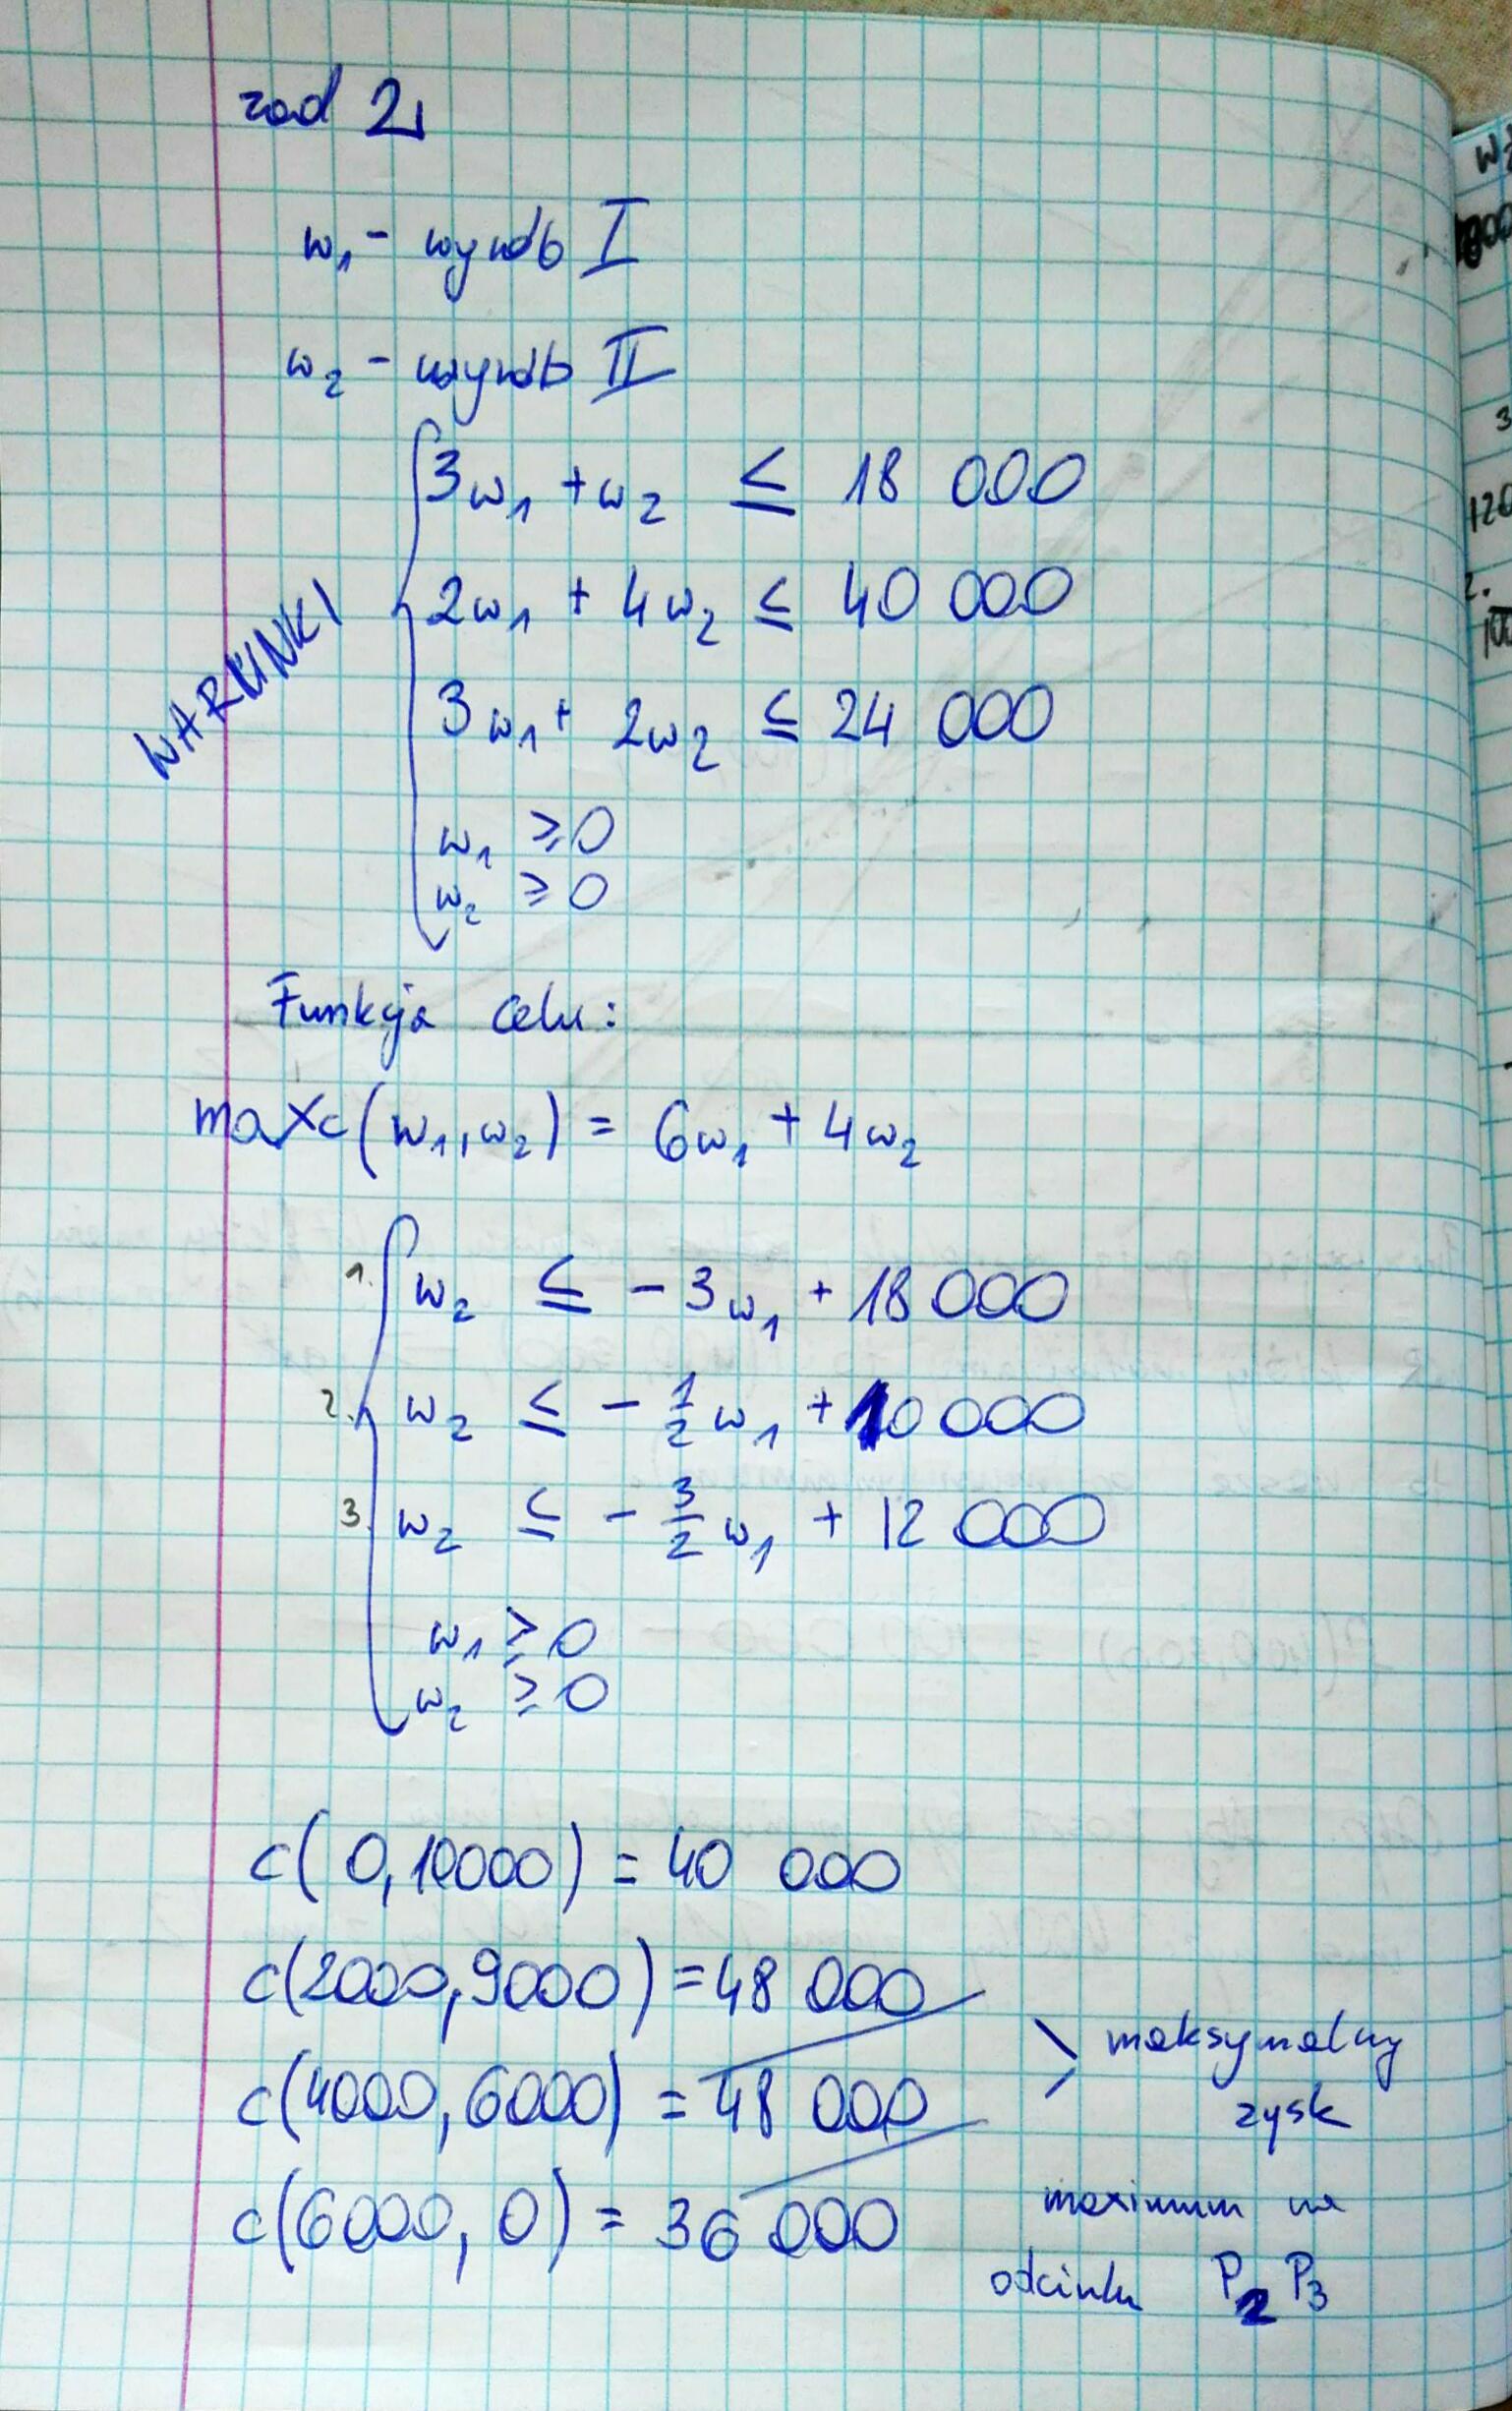 zad 2.
w₁ - wyrób I
w₂ - wyrób II
WARUNKI
3w₁ + w₂ ≤ 18 000
2w₁ + 4w₂ ≤ 40 000
3w₁ + 2w₂ ≤ 24 000
w₁ ≥ 0
w₂ ≥ 0
Funkcja celu:
max c(w₁, w₂) = 6w₁ + 4w₂
1. w₂ ≤ - 3w₁ + 18 000
2. w₂ ≤ - 1/2 w₁ + 10 000
3. w₂ ≤ - 3/2 w₁ + 12 000
w₁ ≥ 0
w₂ ≥ 0
c(0, 10000) = 40 000
c(2000, 9000) = 48 000
c(4000, 6000) = 48 000
maksymalny
zysk
c(6000, 0) = 36 000
maximum na
odcinku P₂ P₃